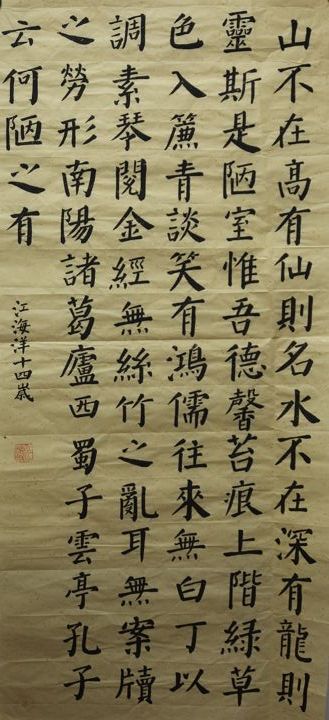 山不在高有仙則名水不在深有龍則
靈斯是陋室惟吾德馨苔痕上階綠草
色入簾青談笑有鴻儒往來無白丁以
調素琴閱金經無絲竹之亂耳無案牘
之勞形南陽諸葛廬西蜀子雲亭孔子
云何陋之有
江海洋十四歲